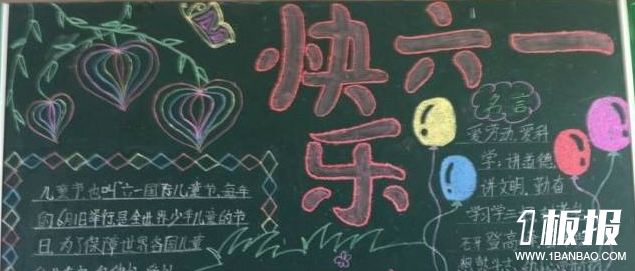 快六一
乐
名言
爱劳动,爱科
学,讲道德,
讲文明,勤奋
学习
登高
儿童节也叫“六一国际儿童节,每年
的6月1日举行是全世界少年儿童的节
日,为了保障世界各国儿童
1板报
WWW.1BANBAO.COM